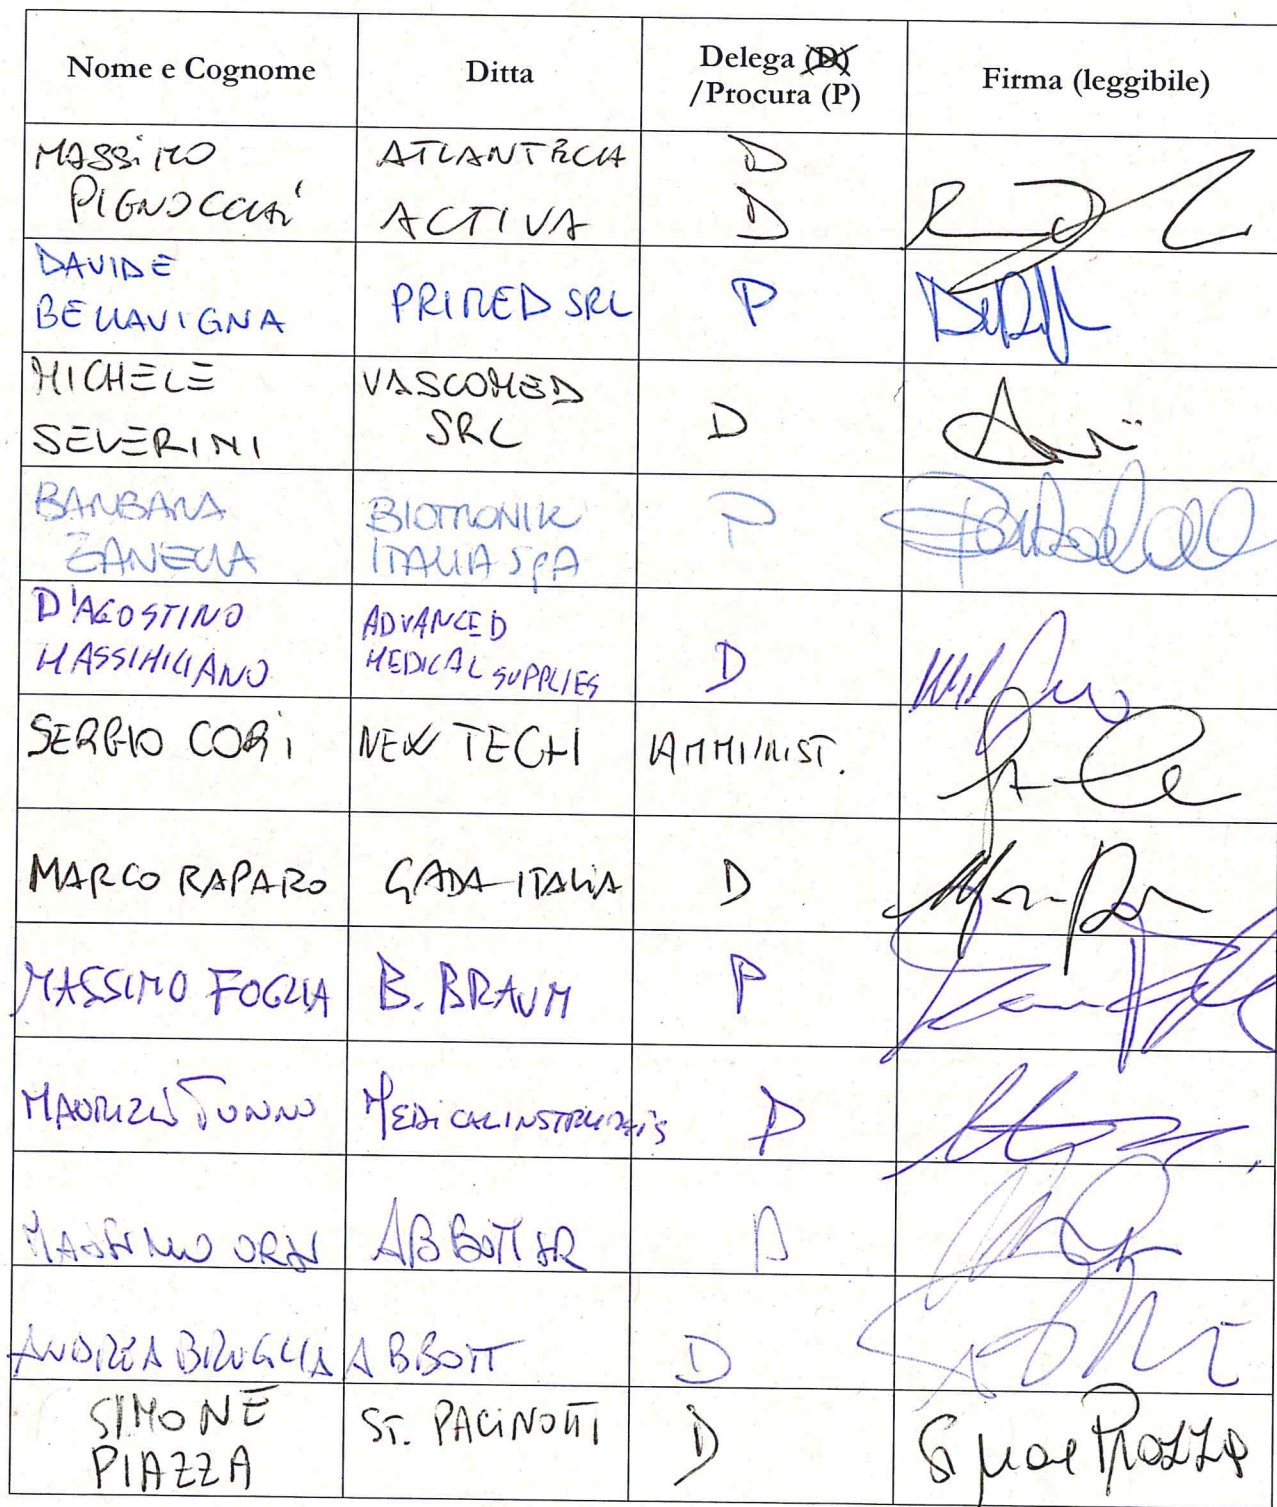 Nome e Cognome
Ditta
Delega (D)
/Procura (P)
Firma (leggibile)
MASSIMO
PIGNOCCHI
ATLANTECH
D
ACTIVA
D
DAVIDE
BELLAVIGNA
PRIMED SRL
P
MICHELE
SEVERINI
VASCOMED
SRL
D
BARBARA
ZANELLA
BIOTRONIK
ITALIA SpA
P
D'AGOSTINO
MASSIMILIANO
ADVANCED
MEDICAL SUPPLIES
D
SERGIO CORI
NEW TECH
AMMINIST.
MARCO RAPARO
GADA ITALIA
D
MASSIMO FOGLIA
B. BRAUN
P
MAURIZIO TONNO
MEDICAL INSTRUMENTS
P
ABBOTT
ANDREA BRUGLIA
ABBOTT
D
SIMONE
PIAZZA
ST. PACINOTTI
D
Simone Piazza